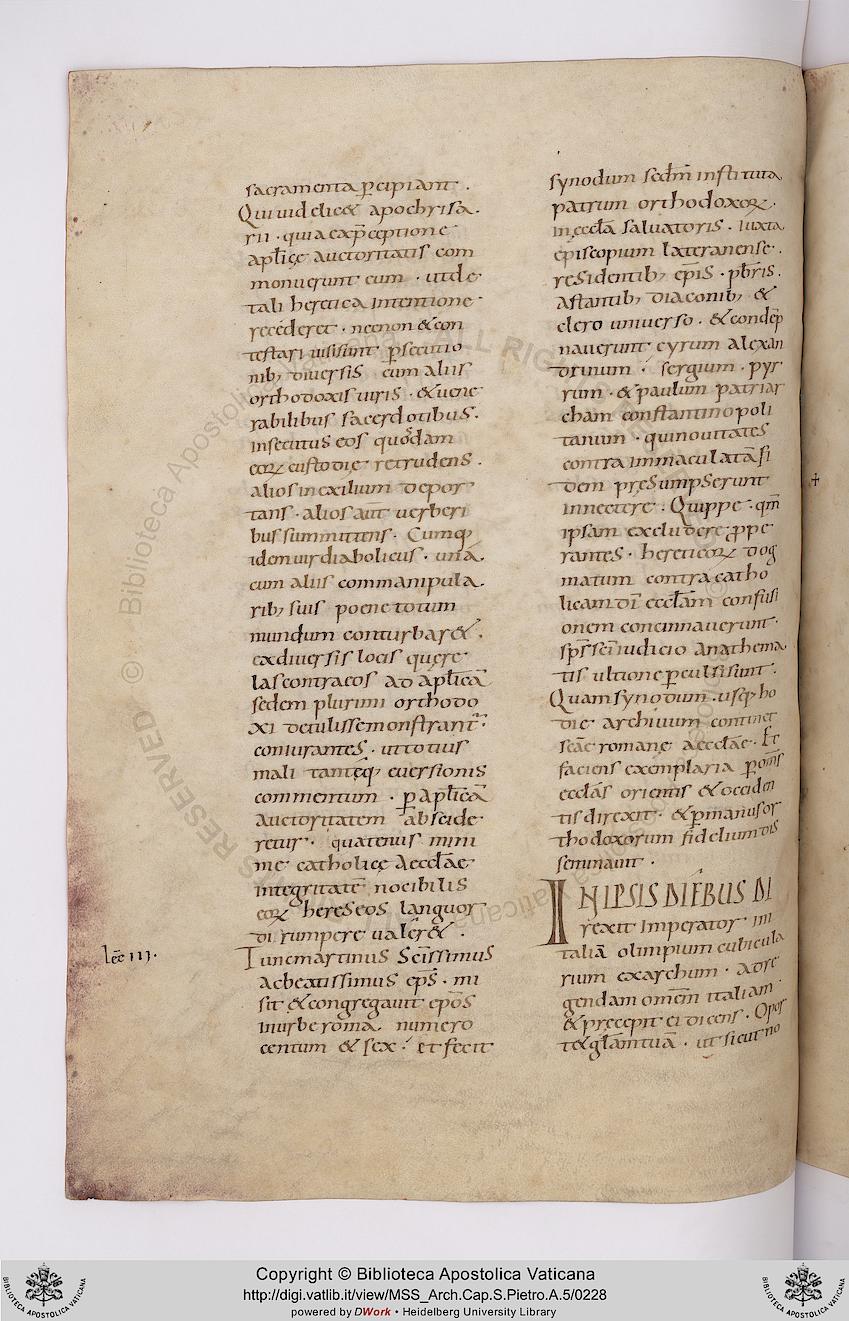 sacramenta p̄cipiant .
Qui uidelic& apochrisa-
rii . quia ex p̄ceptione
apl̄icę auctoritatis com
monuerunt eum . ut de
tali heretica intentione
recederet . necnon & con
testari uisi sunt p̄secutio
nib; diuersis cum aliis
orthodoxis uiris . & uene
rabilibus sacerdotibus .
insecutus eos quosdam
eoꝝ custodię retrudens .
alios in exilium depor
tans . alios aut̄ uerberi
bus summittens . Cumq;
idem uir diabolicus . una
cum aliis commanipula-
rib; suis poene totum
mundum conturbar& .
ex diuersis locis quęre
las contra eos ad apl̄icā
sedem plurimi orthodo
xi detulisse monstrant̄ .
coniurantes . ut totius
mali tantęq; euersionis
commentum . p̄ apl̄icā
auctoritatem abscide
retur . quatenus mini
me catholicę aecclāe
integritatē nocibilis
eoꝝ hereseos languor
dirumpere ualer& .
lec̄ III .
Tunc martinus sc̄issimus
ac beatissimus ep̄s . mi
sit & congregauit ep̄os
in urbe roma . numero
centum & sex . et fecit
synodum sec̄dm instituta
patrum orthodoxoꝝ .
in eccl̄a saluatoris . iuxta
episcopium lateranense .
residentib; ep̄is . pb̄ris .
astantib; diaconib; &
clero uniuerso . & condēp
nauerunt cyrum alexan
drinum . sergium . pyr
rum . & paulum patriar
cham constantinopoli
tanum . qui nouitates
contra immaculatā fi
dem presumpserunt
innectere . Quippe . qm̄
ipsam excludere ꝓpe
rantes . hereticoꝝ dog
matum contra catho
licam dī eccl̄am confusi
onem concinnauerunt .
sp̄s sc̄i iudicio anathema
tis ultione p̄culsi sunt .
Quam synodum . usq; ho
die archiuum continet
sc̄ae romane aecclāe . Et
faciens exemplaria p̄ om̄s
eccl̄as orientis & occiden
tis direxit . & p̄ manus or
thodoxorum fidelium dis
seminauit .
IN IPSIS DIEBUS DI
rexit imperator in
taliā olimpium cubicula
rium exarchum . ad re
gendam omem̄ italiam .
& precepit ei dicens . Opor
t& glām tuā . ut sicut no
+
Copyright © Biblioteca Apostolica Vaticana
http://digi.vatlib.it/view/MSS_Arch.Cap.S.Pietro.A.5/0228
powered by DWork • Heidelberg University Library